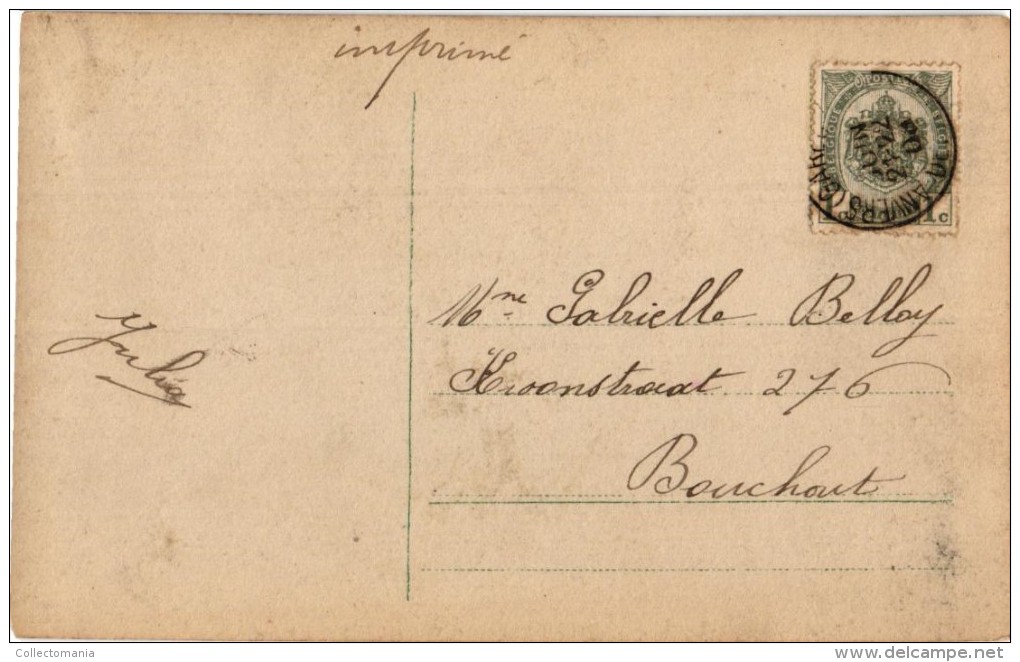 imprimé
Mme Gabrielle Belloy
Kroonstraat 276
Bouchout
Julia
1c 1c
ANVERS (GARE
Collectomania
www.delcampe.net